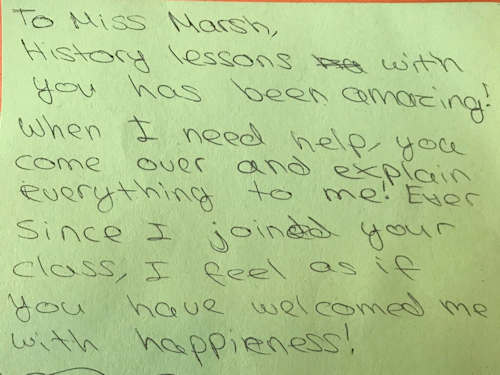 To Miss Marsh,
History lessons with
you has been amazing!
When I need help, you
come over and explain
everything to me! Ever
Since I joined your
class, I feel as if
you have welcomed me
with happieness!